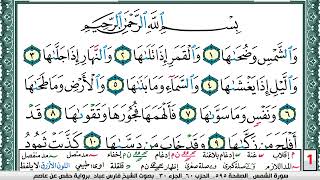 بِسْمِ اللَّهِ الرَّحْمَٰنِ الرَّحِيمِ
وَالشَّمْسِ وَضُحَىٰهَا ١ وَالْقَمَرِ إِذَا تَلَىٰهَا ٢ وَالنَّهَارِ إِذَا جَلَّىٰهَا ٣
وَالَّيْلِ إِذَا يَغْشَىٰهَا ٤ وَالسَّمَآءِ وَمَا بَنَىٰهَا ٥ وَالْأَرْضِ وَمَا طَحَىٰهَا
٦ وَنَفْسٍ وَمَا سَوَّىٰهَا ٧ فَأَلْهَمَهَا فُجُورَهَا وَتَقْوَىٰهَا ٨ قَدْ
أَفْلَحَ مَن زَكَّىٰهَا ٩ وَقَدْ خَابَ مَن دَسَّىٰهَا ١٠ كَذَّبَتْ ثَمُودُ
1
سورة الشمس الصفحة ٥٩٥ الجزء ٣٠ بصوت الشيخ فارس عباد برواية حفص عن عاصم